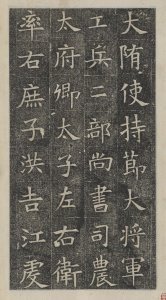 大隋使持節大將軍
工兵二部尚書司農
太府卿太子左右衛
率右庶子洪吉江虔